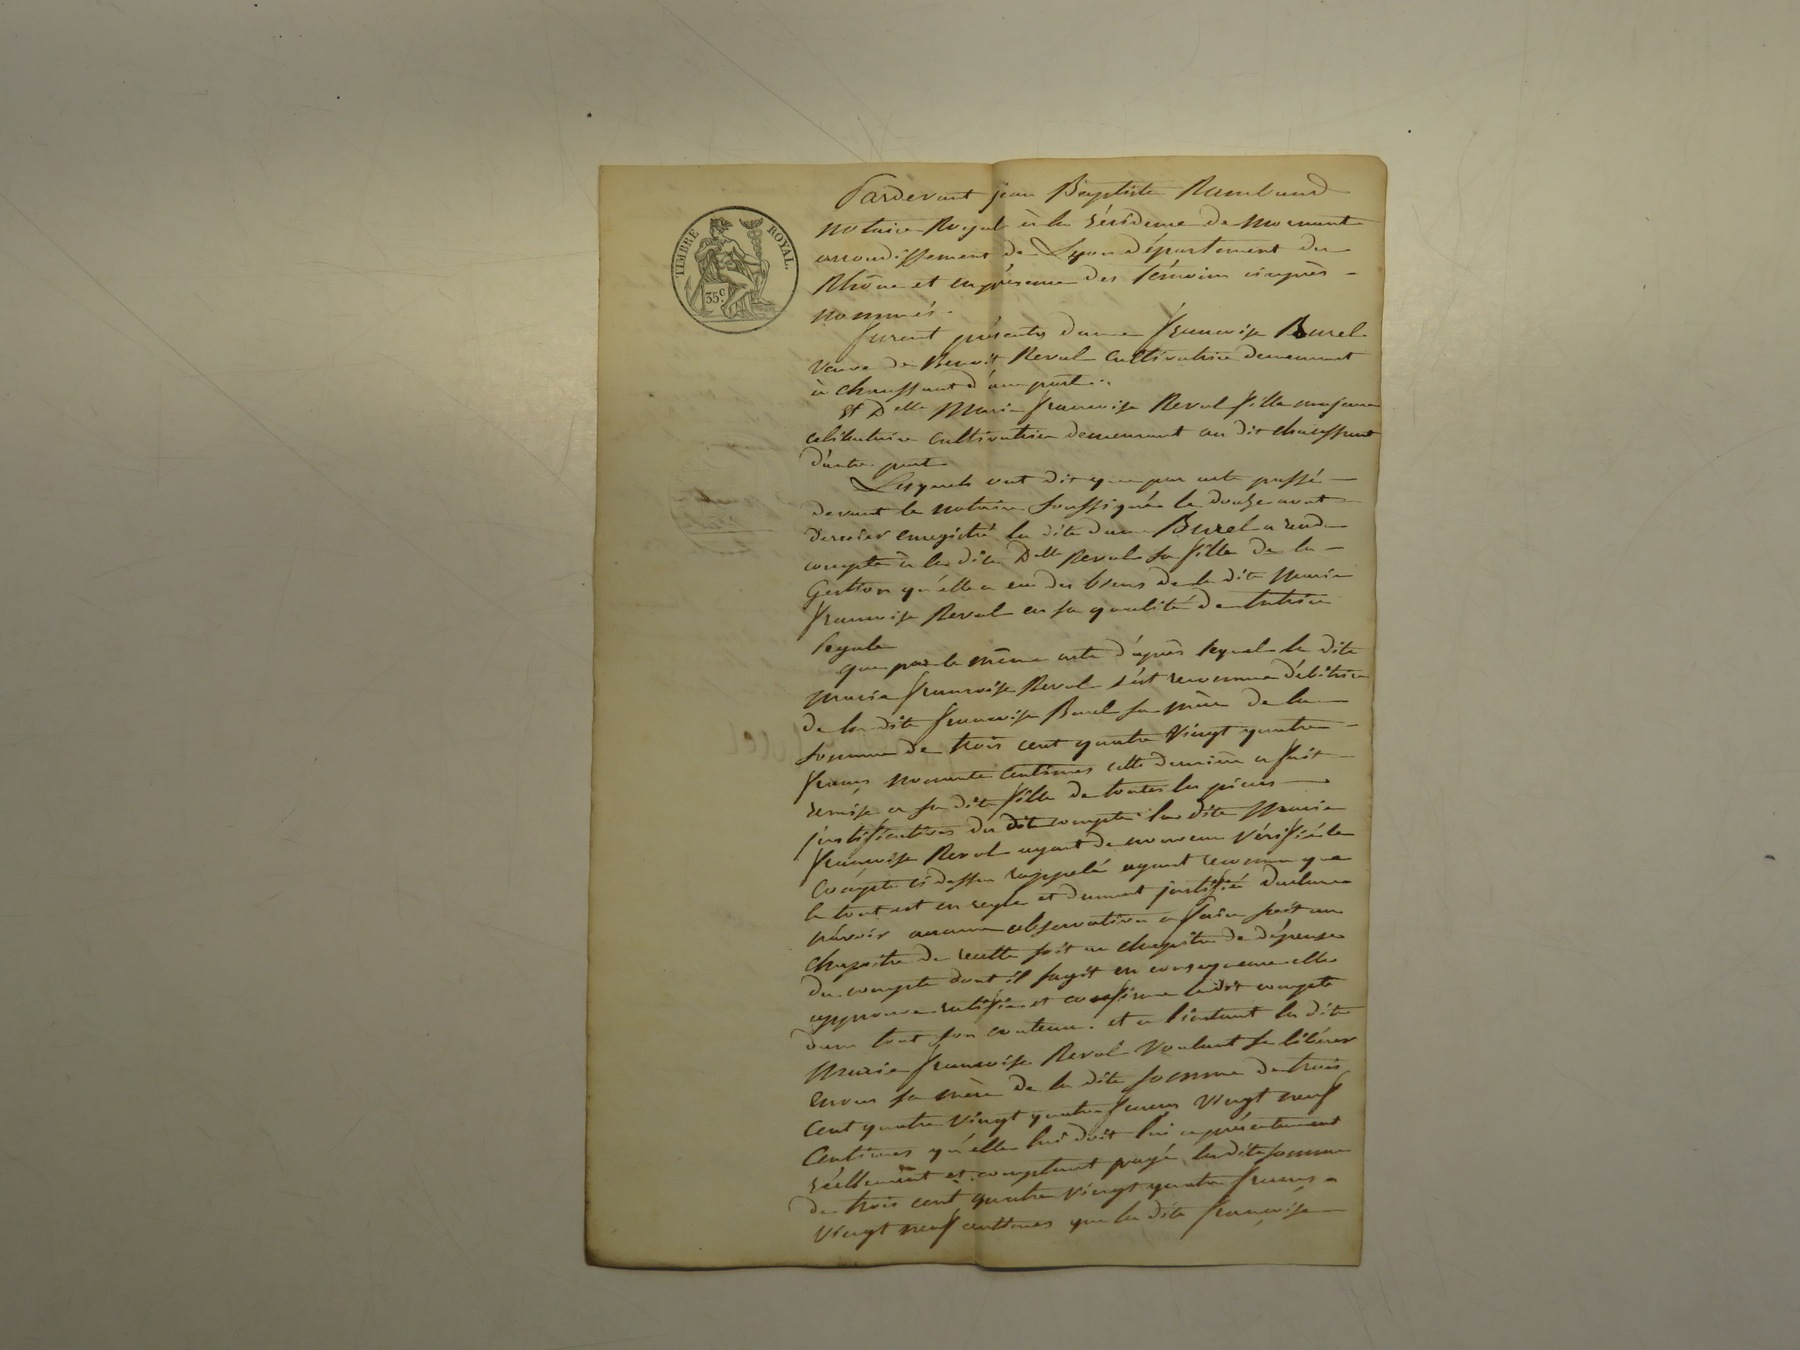 TIMBRE ROYAL.
35c
Pardevant jean Baptiste Rambaud
notaire Royal à la résidence de Mornant
arrondissement de Lyon département du
Rhône et en présence des témoins ciaprès
nommés.
furent présents dame françoise Burel
veuve de Benoit Reval cultivatrice demeurant
à chaussant d'une part.
Et Delle Marie françoise Reval fille majeure
celibataire cultivatrice demeurant au dit chaussant
d'autre part
Lesquels ont dit que par acte passé
devant le notaire soussigné le douze avril
dernier enregistré la dite dame Burel a rendu
compte à la dite Delle Reval sa fille de la
Gestion qu'elle a eu des biens de la dite Marie
françoise Reval en sa qualité de tutrice
legale
que par le même acte d'après lequel la dite
Marie françoise Reval s'est reconnue débitrice
de la dite françoise Burel sa mère de la
somme de trois cent quatre vingt quatre
francs centimes cette dernière a fait
remise a sa dite fille de toutes les pièces
justificatives du dit compte la dite Marie
françoise Reval ayant de nouveau vérifié le
compte ci dessus rappelé ayant reconnu que
le tout est en regle et dument justifié déclare
n'avoir aucune observation a faire soit au
chapitre de recette soit au chapitre de dépense
du compte dont il s'agit en conséquence elle
approuve ratifie et confirme le dit compte
dans tout son contenu. et a l'instant la dite
Marie françoise Reval voulant se libérer
envers sa mère de la dite somme de trois
cent quatre vingt quatre francs vingt neuf
centimes qu'elle lui doit lui a présentement
réellement et comptant payé la dite somme
de trois cent quatre vingt quatre francs
vingt neuf centimes que la dite françoise